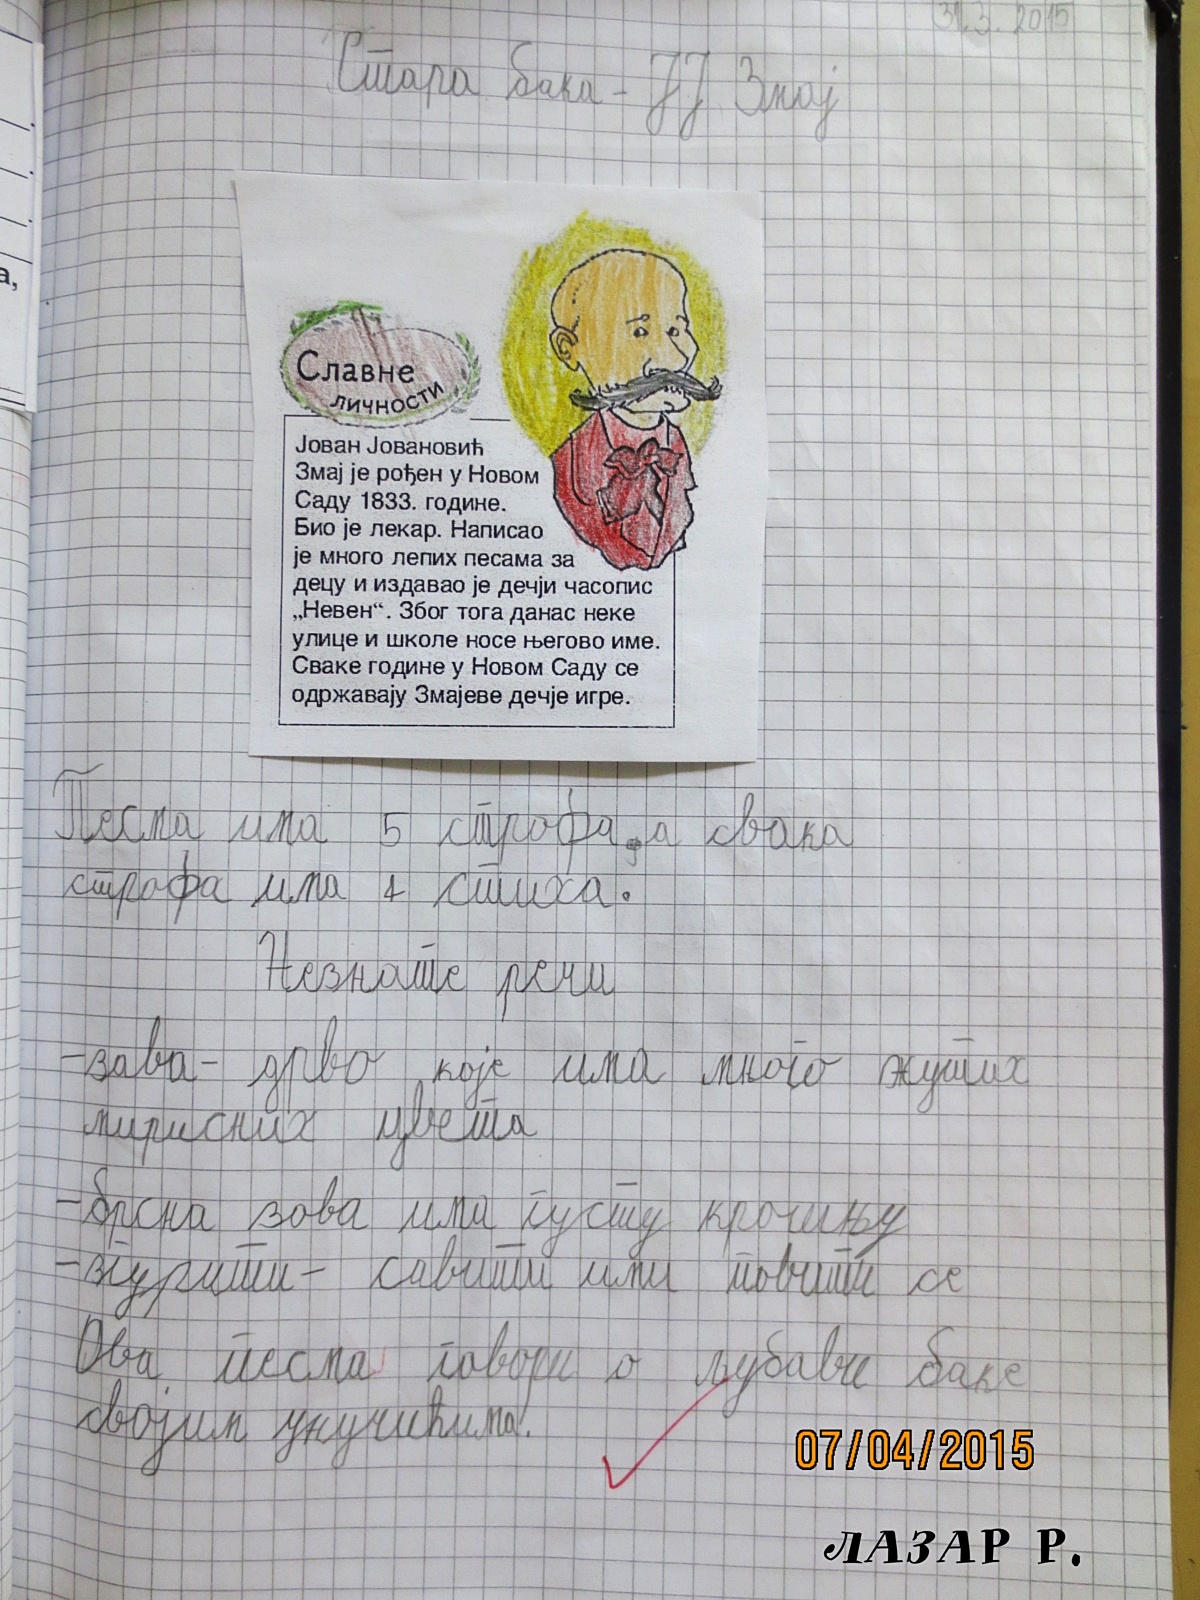 31.3.2015
Стара бака - ЈЈ Змај
Славне
личности
Јован Јовановић
Змај је рођен у Новом
Саду 1833. године.
Био је лекар. Написао
је много лепих песама за
децу и издавао је дечји часопис
„Невен“. Због тога данас неке
улице и школе носе његово име.
Сваке године у Новом Саду се
одржавају Змајеве дечје игре.
Песма има 5 строфа, а свака
строфа има 4 стиха.
Незнате речи
-зава- дрво које има много жутих
мирисних цвета
-брсна зова има густу крочињу
-згурити- савити или повити се
Ова песма говори о љубави баке
својим унучићима.
07/04/2015
ЛАЗАР Р.
а,